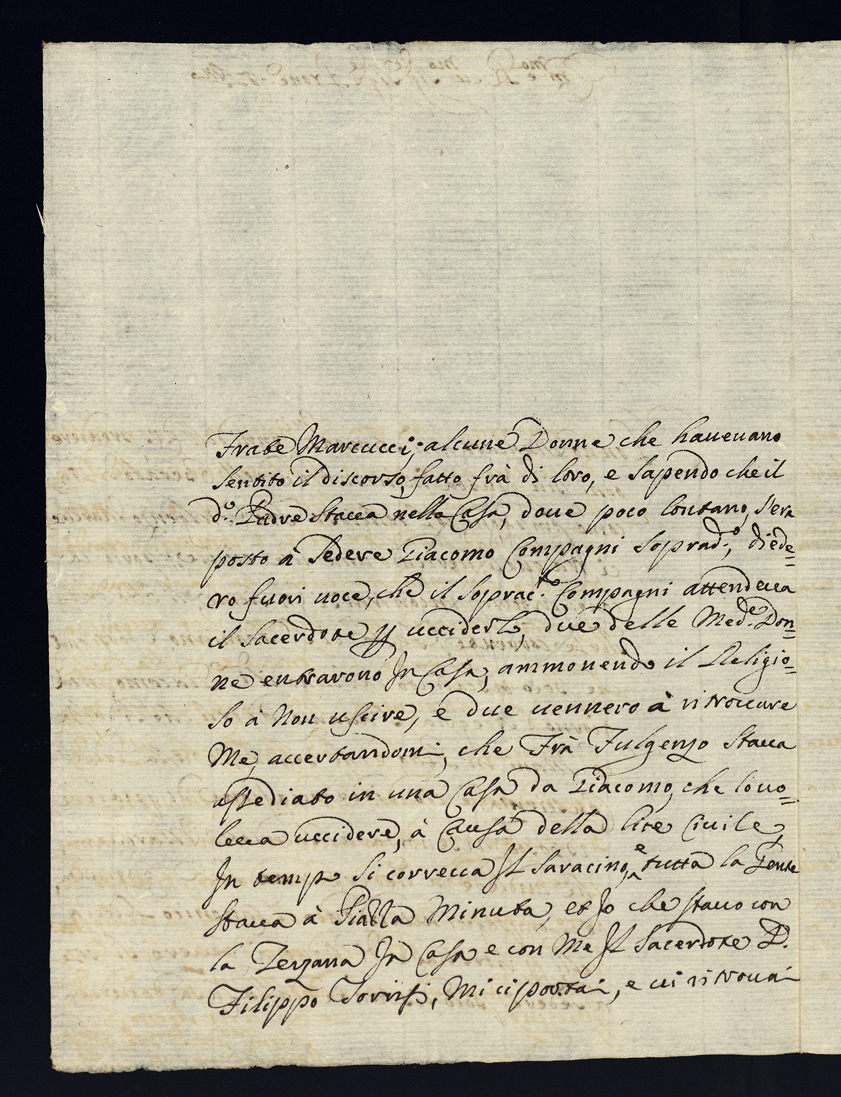 Frate Marcucci; alcune Donne che haueuano
sentito il discorso, fatto frà di loro, e sapendo che il
d.o Padre Staua nella Casa, doue poco lontano, s'era
posto à sedere Giacomo Compagni soprad.o, diede=
ro fuori uoce, che il soprad.to Compagni attendeua
il Sacerdote p ucciderlo, due delle Med.e Don=
ne entrarono In Casa, ammonendo il Religio=
so à Non uscire, e due uennero à ritrouare
Me, accertandomi, che Frà Fulgenzo staua
assediato in una Casa da Giacomo, che lo uo=
leua uccidere, à Causa della lite Ciuile,
In tempo si correua Il Saracino, e tutta la Gente
staua à Piazza Minuta, et Io che stauo con
la Terzana In Casa e con Me Il Sacerdote D.
Filippo, Mi ci portai, e ui ritrouai